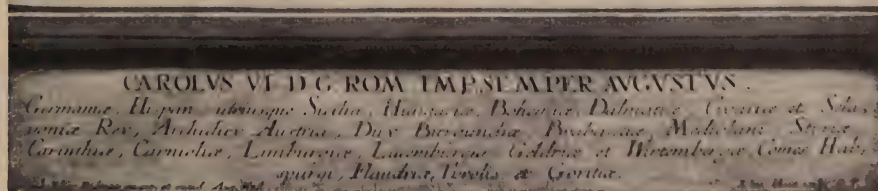 CAROLVS VI D. G. ROM. IMP. SEMPER AVGVSTVS.
Germaniæ, Hispan. utriusque Siciliæ, Hungariæ, Bohemiæ, Dalmatiæ, Croatiæ et Scla,
voniæ Rex, Archidux Austriæ, Dux Burgundiæ, Brabantiæ, Mediolani, Styriæ,
Carinthiæ, Carnioliæ, Limburgiæ, Lucemburgiæ, Geldriæ et Wirtembergæ, Comes Hab,
spurgi, Flandriæ, Tyrolis et Goritiæ.